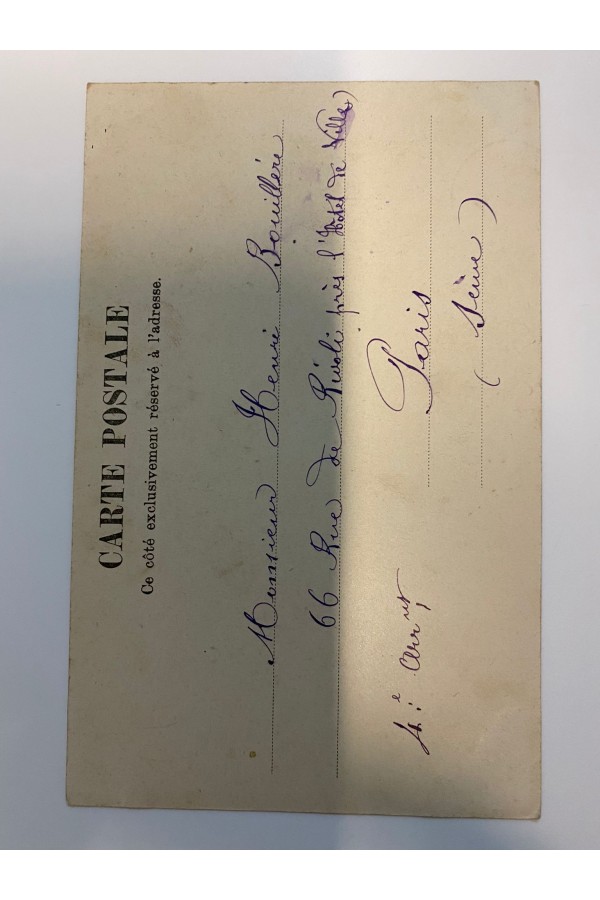 CARTE POSTALE
Ce côté exclusivement réservé à l'adresse.
Monsieur Henri Bouilléré
66 Rue de Rivoli près l'Hôtel de Ville)
4.e Arr.nt,
Paris
(Seine)